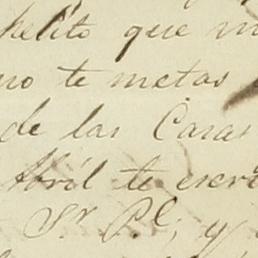 que m
no te metas
de las Casas
Abril te escri
Sr. Pl; y